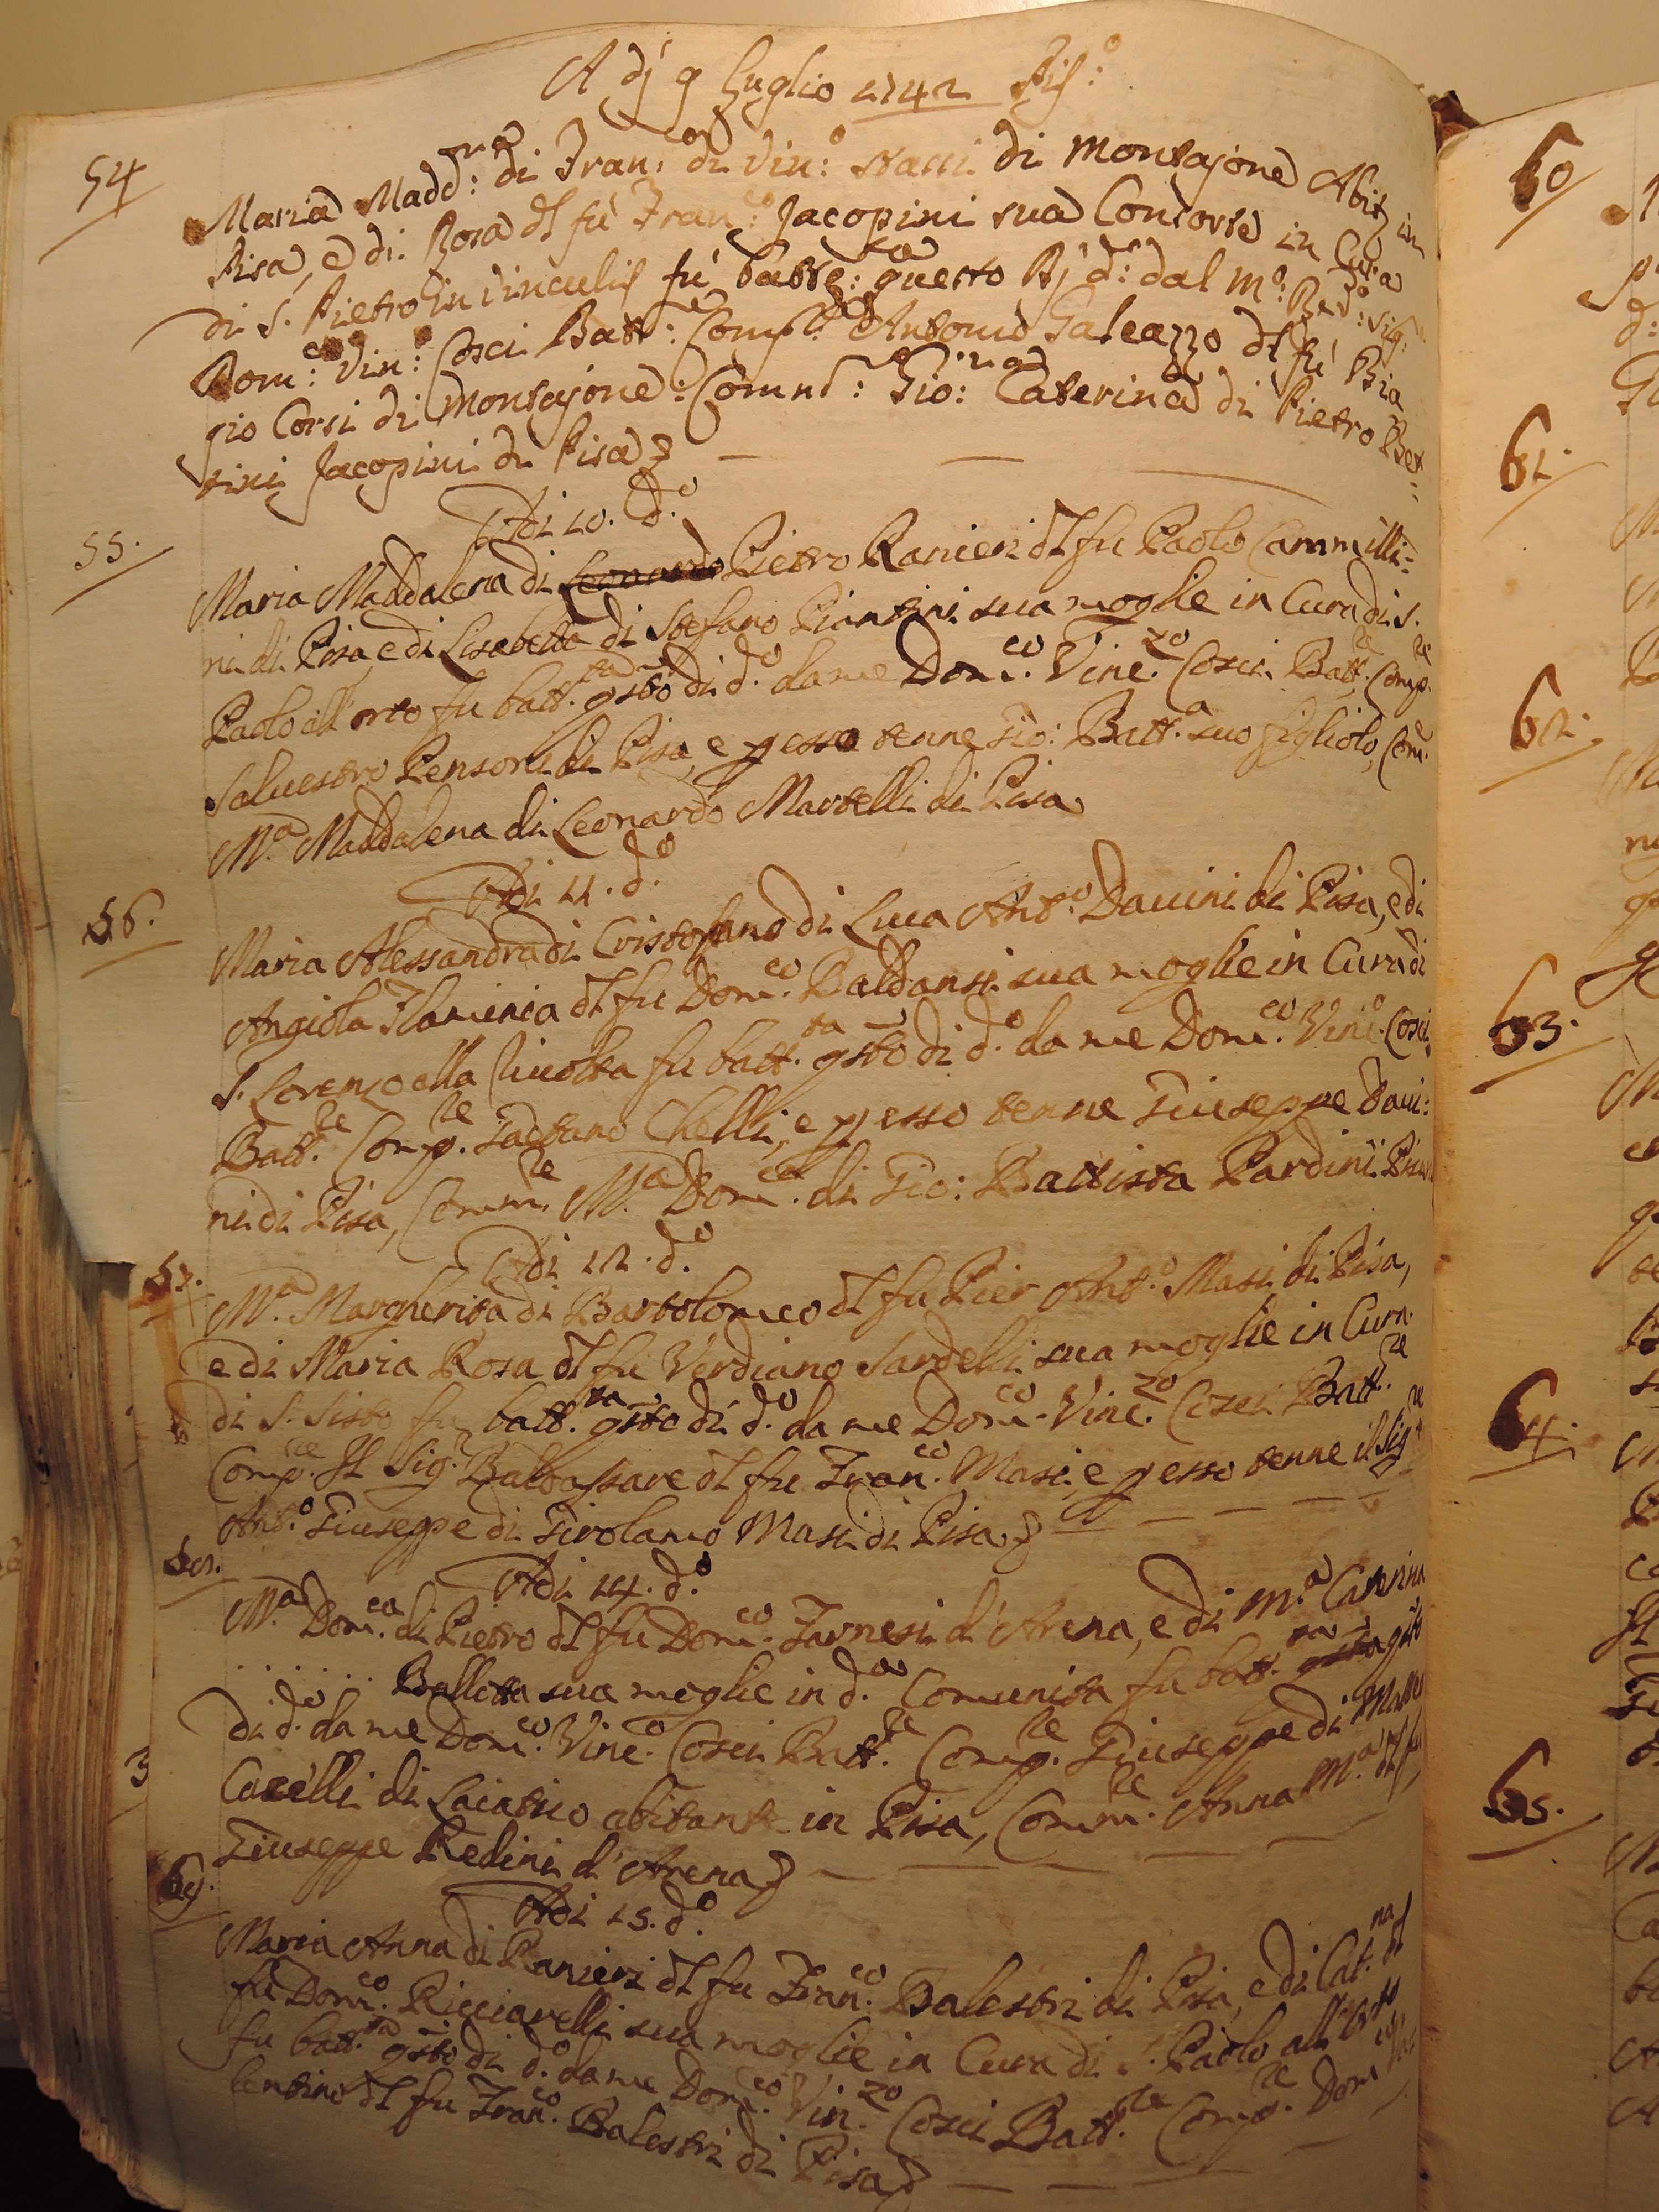 A dj 9 Luglio 1742 Pis:º
54
Maria Madd:na di Fran:co di Vin:º Stacci di Montajone Abitº in
Pisa, e di Rosa dl fù Fran:co Jacopini sua Consorte in Cura
di S. Pietro in Vinculis fù batte:ta questo Dj d:º dal M:º Rev:do Sig:
Dom:co Vin:º Cosci Batt:re Comp:re Antonio Galeazzo dl fù Bia
gio Corsi di Montajone: Comre: Gio: Caterina di Pietro Bet=
tini Jacopini di Pisa
Adi 10. d.º
55.
Maria Maddalena di Leonardo Pietro Ranieri dl fu Paolo Cammilli=
ni di Pisa, e di Lisabetta di Stefano Piantini sua moglie in Cura di S.
Paolo all'orto fu batt.ta qsto di d.º da me Dom.co Vinc.zo Cosci Batt.re Comp.re
Salvestro Pensori di Pisa, e p esso tenne Gio: Batt.a suo figliolo, Com.
M.a Maddalena di Leonardo Martelli di Pisa
Adi 11. d.º
56.
Maria Alessandra di Cristofano di Luca Ant.º Davini di Pisa, e di
Angiola Flaminia dl fu Dom.co Baldansi sua moglie in Cura di
S. Lorenzo alla Rivolta fu batt.ta qsto di d.º da me Dom.co Vinc.º Cosci
Batt.re Comp.re Gaetano Chelli, e p esso tenne Giuseppe Davi:
ni di Pisa, Comm.re M.a Dom.ca di Gio: Battista Pardini Pisa
Adi 12. d.º
57.
M.a Margherita di Bartolomeo dl fu Pier Ant.º Masi di Pisa,
e di Maria Rosa dl fu Verdiano Sardelli sua moglie in Cura
di S. Sisto fu batt.ta qsto di d.º da me Dom.co Vinc.zo Cosci Batt.re
Comp.re Il Sig.re Baldassare dl fu Fran.co Masi, e p esso tenne il Sig.re
Ant.º Giuseppe di Girolamo Masi di Pisa
58.
Adi 14. d.º
M.a Dom.ca di Pietro dl fu Dom.co Farnesi d'Arena, e di M.a Caterina
. . . . . . Balletta sua moglie in d.a Comunita fu batt.ta qsto
di d.º da me Dom.co Vinc.º Cosci Batt.re Comp.re Giuseppe di Matteo
3
Caselli di Laiatico abitante in Pisa, Comm.re Anna M.a dl fu
Giuseppe Redini d'Arena
59.
Adi 15. d.º
Maria Anna di Ranieri dl fu Fran.co Balestri di Pisa, e di Cat.na dl
fu Dom.co Ricciarelli sua moglie in Cura di S. Paolo all'Orto
fu batt.ta qsto di d.º da me Dom.co Vin.zo Cosci Batt.re Comp.re Dom
lentino dl fu Fran.co Balestri di Pisa
60
61.
62.
63.
64.
65.